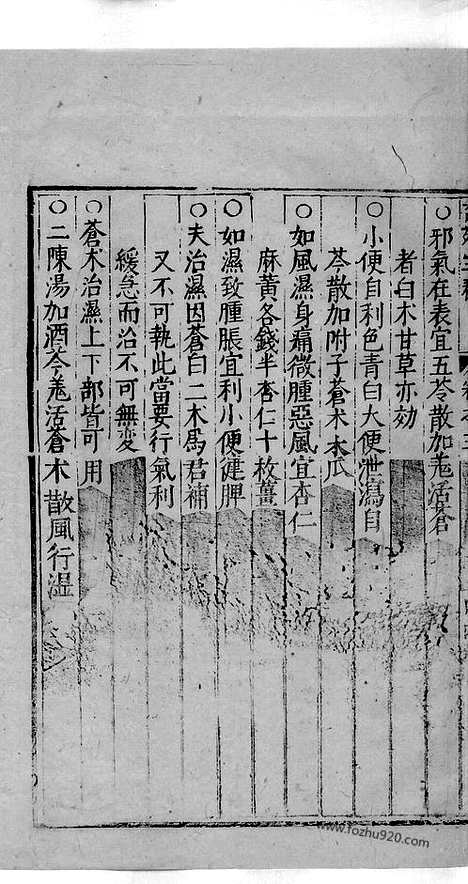 ○邪氣在表宜五苓散加羗活蒼
者白朮甘草亦効
○小便自利色青白大便泄瀉自
苓散加附子蒼朮木瓜
○如風濕身痛微腫惡風宜杏仁
麻黃各錢半杏仁十枚薑
○如濕致腫脹宜利小便健脾
○夫治濕因蒼白二朮爲君補
又不可執此當要行氣利
緩急而治不可無變
○蒼朮治濕上下部皆可用
○二陳湯加酒芩羗活蒼朮散風行濕
www.fozhu920.com